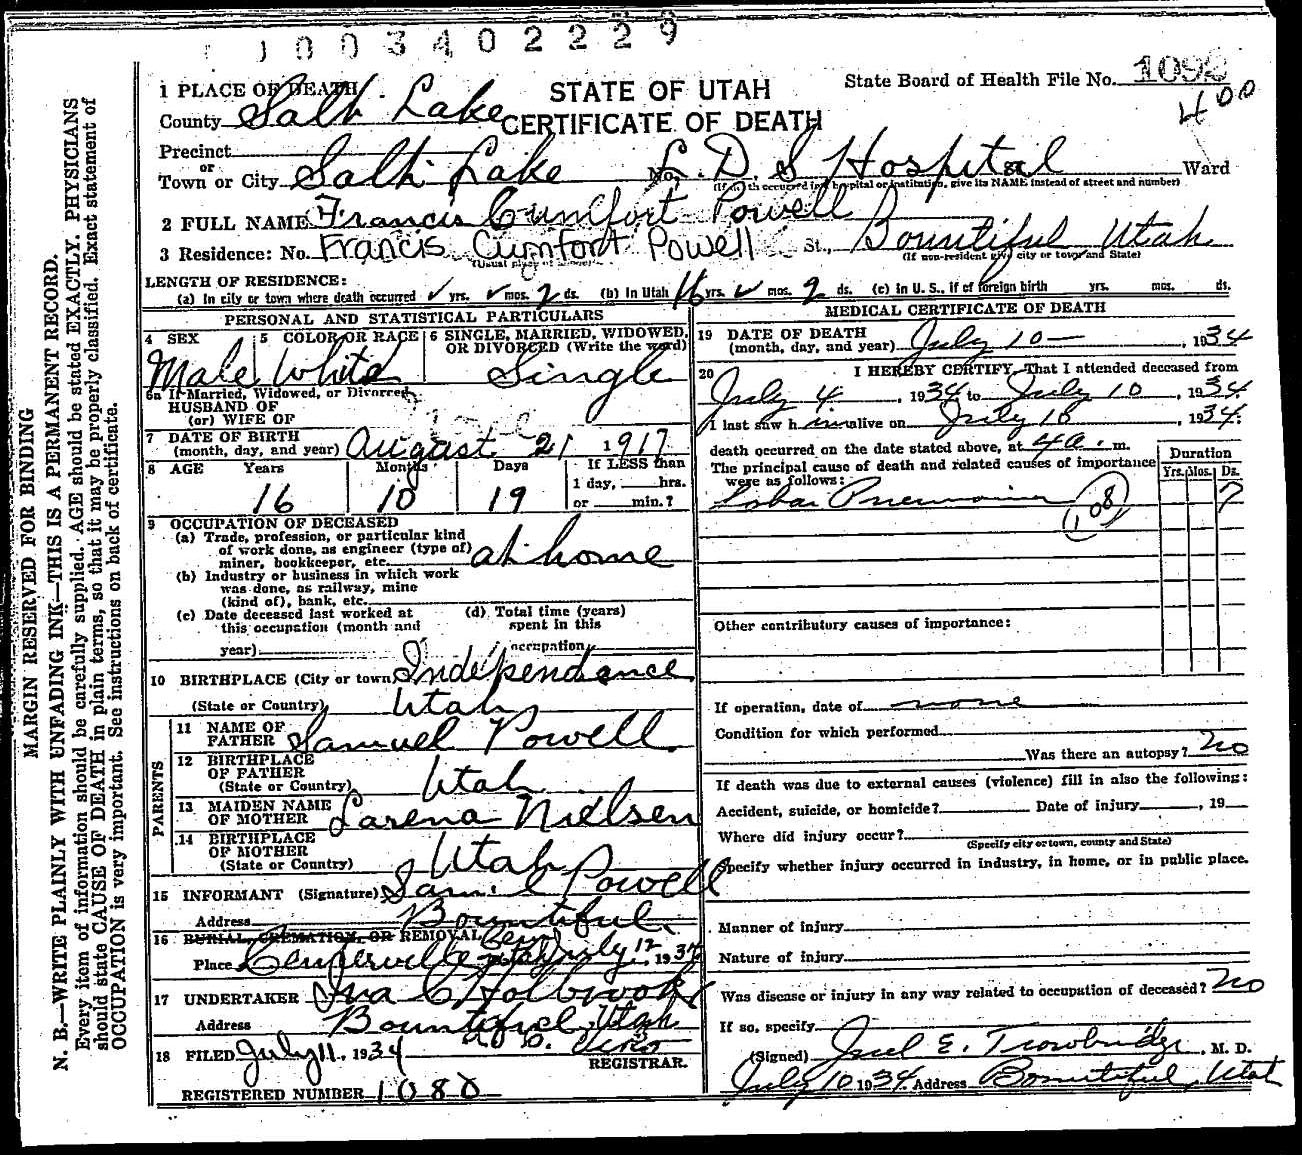 1003402229
1 PLACE OF DEATH
STATE OF UTAH
CERTIFICATE OF DEATH
State Board of Health File No. 1092
400
County Salt Lake
Precinct
or
Town or City Salt Lake No. L. D. S Hospital Ward
(If death occurred in a hospital or institution, give its NAME instead of street and number)
2 FULL NAME Francis Cumfort Powell
3 Residence: No. Francis Cumfort Powell St., Bountiful Utah
(Usual place of abode) (If non-resident give city or town and State)
LENGTH OF RESIDENCE:
(a) In city or town where death occurred ✓ yrs. ✓ mos. 2 ds. (b) In Utah 16 yrs. ✓ mos. 2 ds. (c) in U. S., if of foreign birth yrs. mos. ds.
PERSONAL AND STATISTICAL PARTICULARS
4 SEX
Male
5 COLOR OR RACE
White
6 SINGLE, MARRIED, WIDOWED, OR DIVORCED (Write the word)
Single
6a If Married, Widowed, or Divorced
HUSBAND OF
(or) WIFE OF
7 DATE OF BIRTH
(month, day, and year) August 21 1917
8 AGE Years Months Days If LESS than
1 day, hrs.
16 10 19 or min.?
9 OCCUPATION OF DECEASED
(a) Trade, profession, or particular kind
of work done, as engineer (type of)
miner, bookkeeper, etc. at home
(b) Industry or business in which work
was done, as railway, mine
(kind of), bank, etc.
(c) Date deceased last worked at
this occupation (month and
year)
(d) Total time (years)
spent in this
occupation
10 BIRTHPLACE (City or town) Independance
(State or Country) Utah
PARENTS
11 NAME OF
FATHER Samuel Powell
12 BIRTHPLACE
OF FATHER
(State or Country) Utah
13 MAIDEN NAME
OF MOTHER Larena Nielsen
14 BIRTHPLACE
OF MOTHER
(State or Country) Utah
15 INFORMANT (Signature) Samuel Powell
Address Bountiful
16 BURIAL, CREMATION, OR REMOVAL
Place Centerville July 12 1934
17 UNDERTAKER Iva C Holbrook
Address Bountiful, Utah
18 FILED July 11, 1934
REGISTRAR.
REGISTERED NUMBER 1080
MEDICAL CERTIFICATE OF DEATH
19 DATE OF DEATH
(month, day, and year) July 10 — , 1934
20 I HEREBY CERTIFY, That I attended deceased from
July 4, 1934 to July 10, 1934.
I last saw him alive on July 10, 1934.
death occurred on the date stated above, at 4 a. m.
The principal cause of death and related causes of importance
were as follows:
Duration
Yrs. Mos. Ds.
Lobar Pneumonia 7
108
Other contributory causes of importance:
If operation, date of none
Condition for which performed
Was there an autopsy? No
If death was due to external causes (violence) fill in also the following:
Accident, suicide, or homicide? Date of injury , 19
Where did injury occur?
(Specify city or town, county and State)
Specify whether injury occurred in industry, in home, or in public place.
Manner of injury
Nature of injury
Was disease or injury in any way related to occupation of deceased? No
If so, specify
(Signed) E. Trowbridge, M. D.
July 10 1934 Address Bountiful, Utah
MARGIN RESERVED FOR BINDING
N. B.—WRITE PLAINLY WITH UNFADING INK—THIS IS A PERMANENT RECORD.
Every item of information should be carefully supplied. AGE should be stated EXACTLY. PHYSICIANS
should state CAUSE OF DEATH in plain terms, so that it may be properly classified. Exact statement of
OCCUPATION is very important. See instructions on back of certificate.